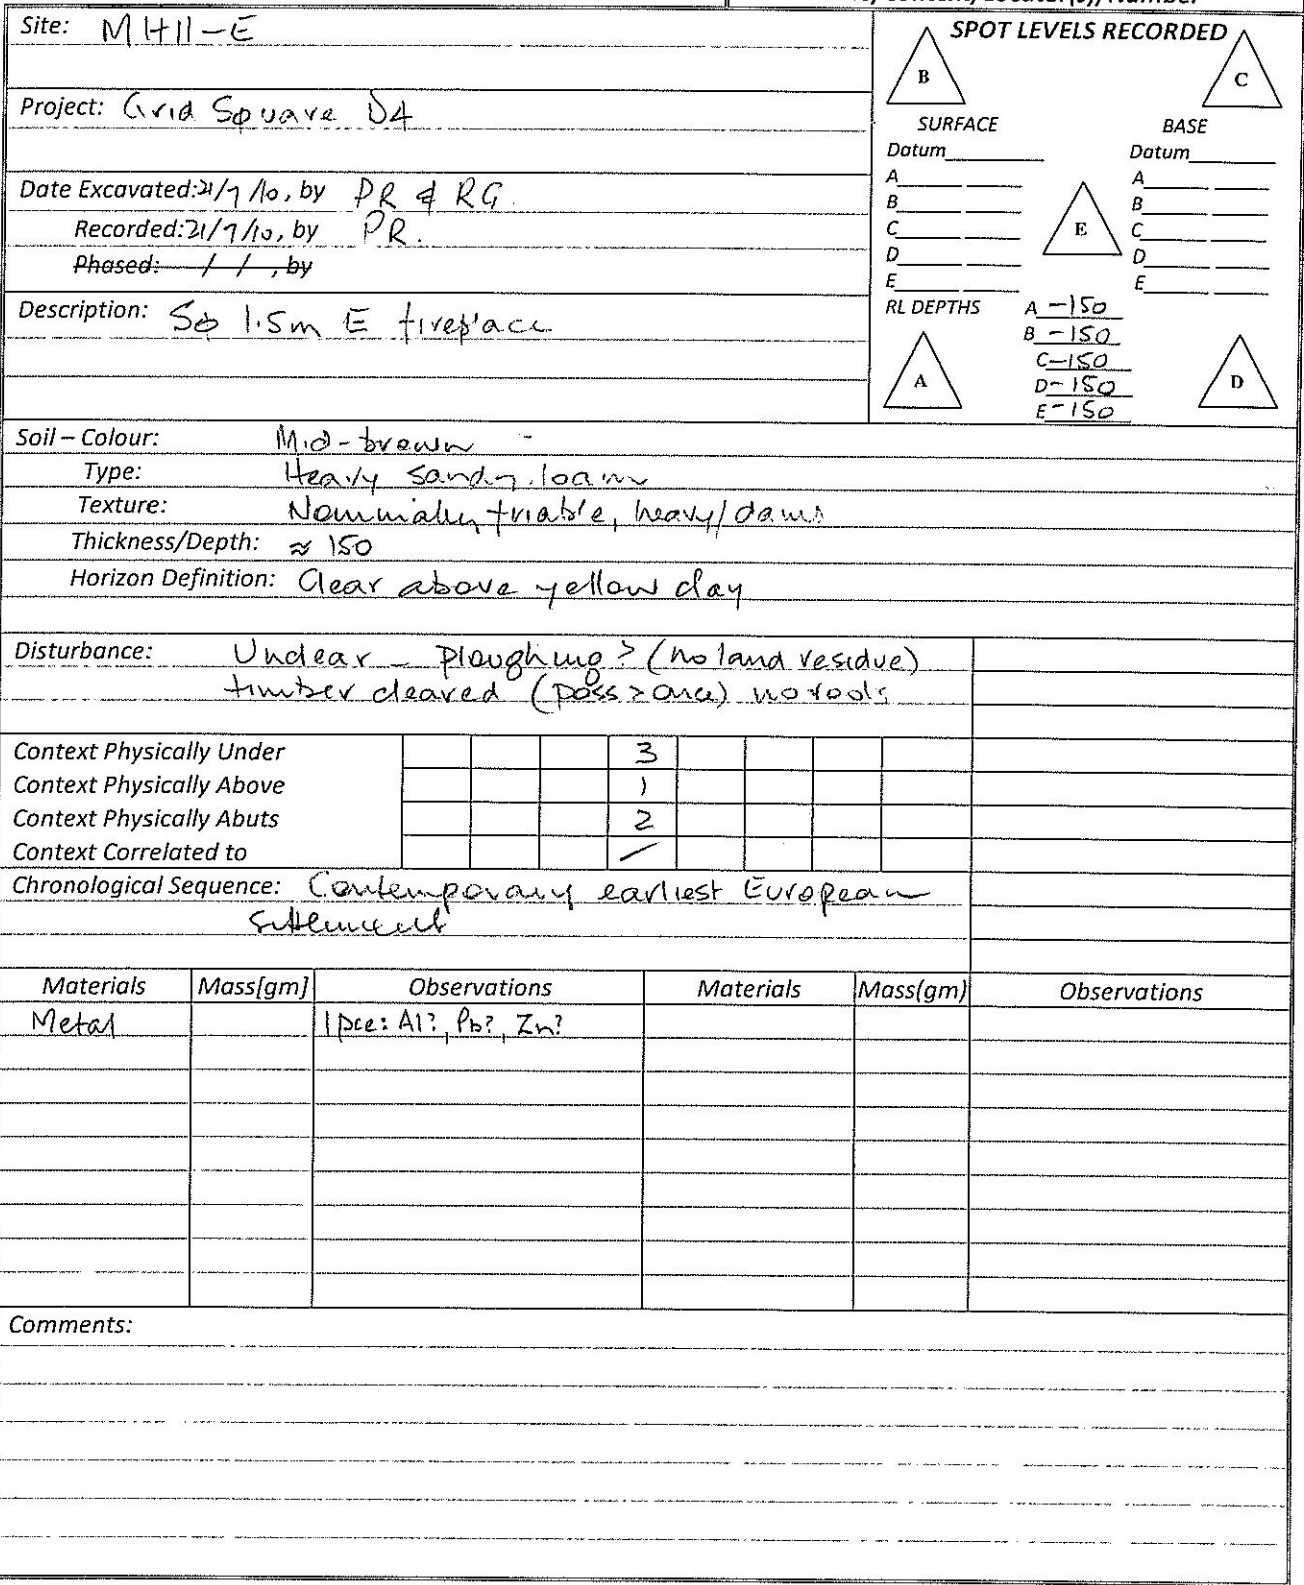 Site: MH11-E
Project: Grid Square D4
Date Excavated: 21/7/10, by PR & RG.
Recorded: 21/7/10, by PR.
Phased: / / , by
Description: Sq 1.5m E fireplace
SPOT LEVELS RECORDED
B
C
SURFACE BASE
Datum Datum
A A
B B
C C
D D
E E
E
RL DEPTHS A -150
B -150
C -150
D -150
E -150
A
D
Soil – Colour: Mid-brown
Type: Heavy sandy loam
Texture: Nominally friable, heavy/damp
Thickness/Depth: ≈ 150
Horizon Definition: Clear above yellow clay
Disturbance: Unclear – Ploughing? (no land residue)
timber cleared (poss > once) no roots
Context Physically Under 3
Context Physically Above 1
Context Physically Abuts 2
Context Correlated to /
Chronological Sequence: Contemporary earliest European
settlement
Materials Mass[gm] Observations Materials Mass(gm) Observations
Metal 1pce: Al?, Pb?, Zn?
Comments: